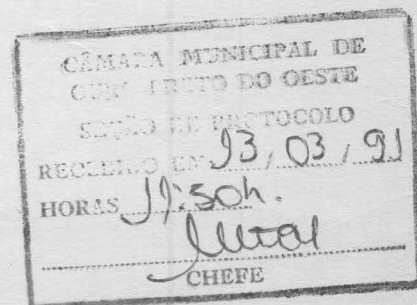 CÂMARA MUNICIPAL DE
OURO PRETO DO OESTE
SEÇÃO DE PROTOCOLO
RECEBIDO EM 13, 03, 91
HORAS 11:50h.
CHEFE